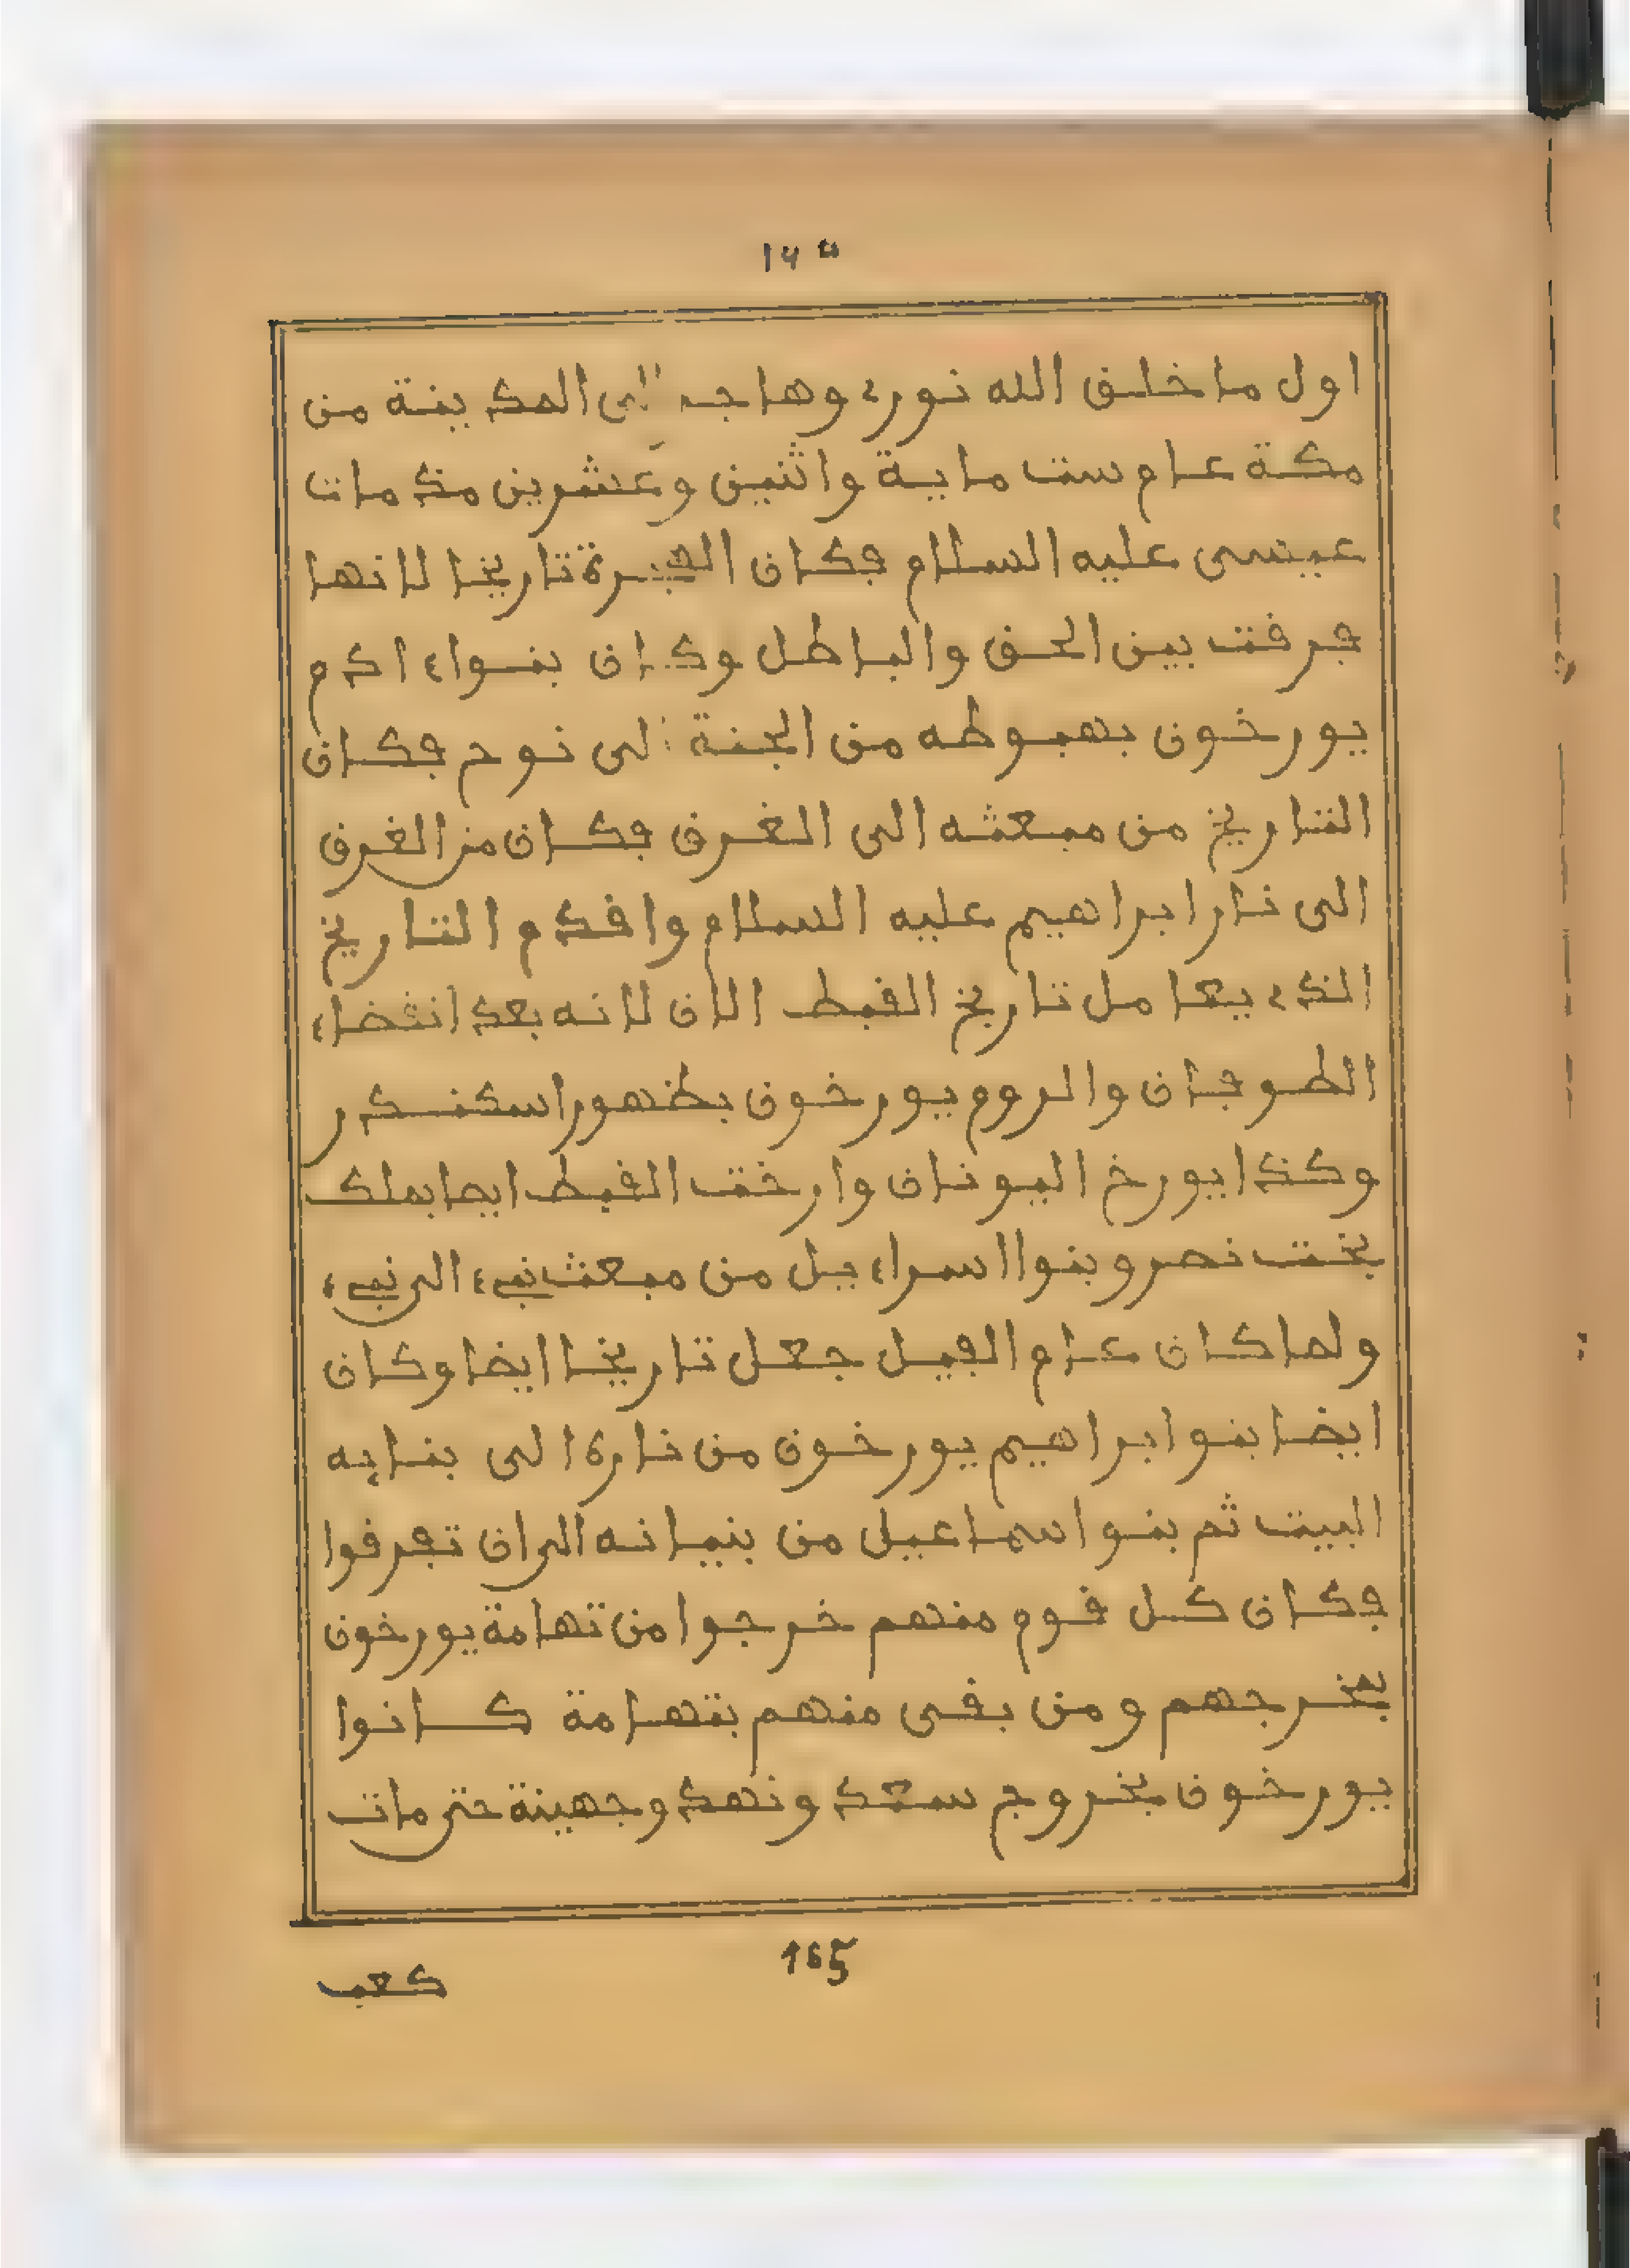 ١٦٥
اول ما خلق الله نوره وهاجر الى المدينة من
مكة عام ست ماية واثنين وعشرين مذ مات
عيسى عليه السلام فكان الهجرة تاريخا لانها
فرقت بين الحق والباطل وكان بنوا ءادم
يورخون بهبوطه من الجنة الى نوح فكان
التاريخ من مبعثه الى الغرق فكان من الغرق
الى نار ابراهيم عليه السلام واقدم التاريخ
الذي بها مل تاريخ القبط الان لانه بعد انقضاء
الطوفان والروم يورخون بظهور اسكندر
وكذا يورخ اليونان وارخت القبط ايضا بملك
بخت نصر وبنوا اسراءيل من مبعث نبيء الى نبيء
ولما كان عام الفيل جعل تاريخا ايضا وكان
ايضا بنو ابراهيم يورخون من ناره الى بنايه
البيت ثم بنو اسماعيل من بنيانه الى ان تفرقوا
فكان كل قوم منهم خرجوا من تهامة يورخون
بمخرجهم ومن بقى منهم بتهامة كانوا
يورخون بخروج سعد ونهد وجهينة حتى مات
165
كعب